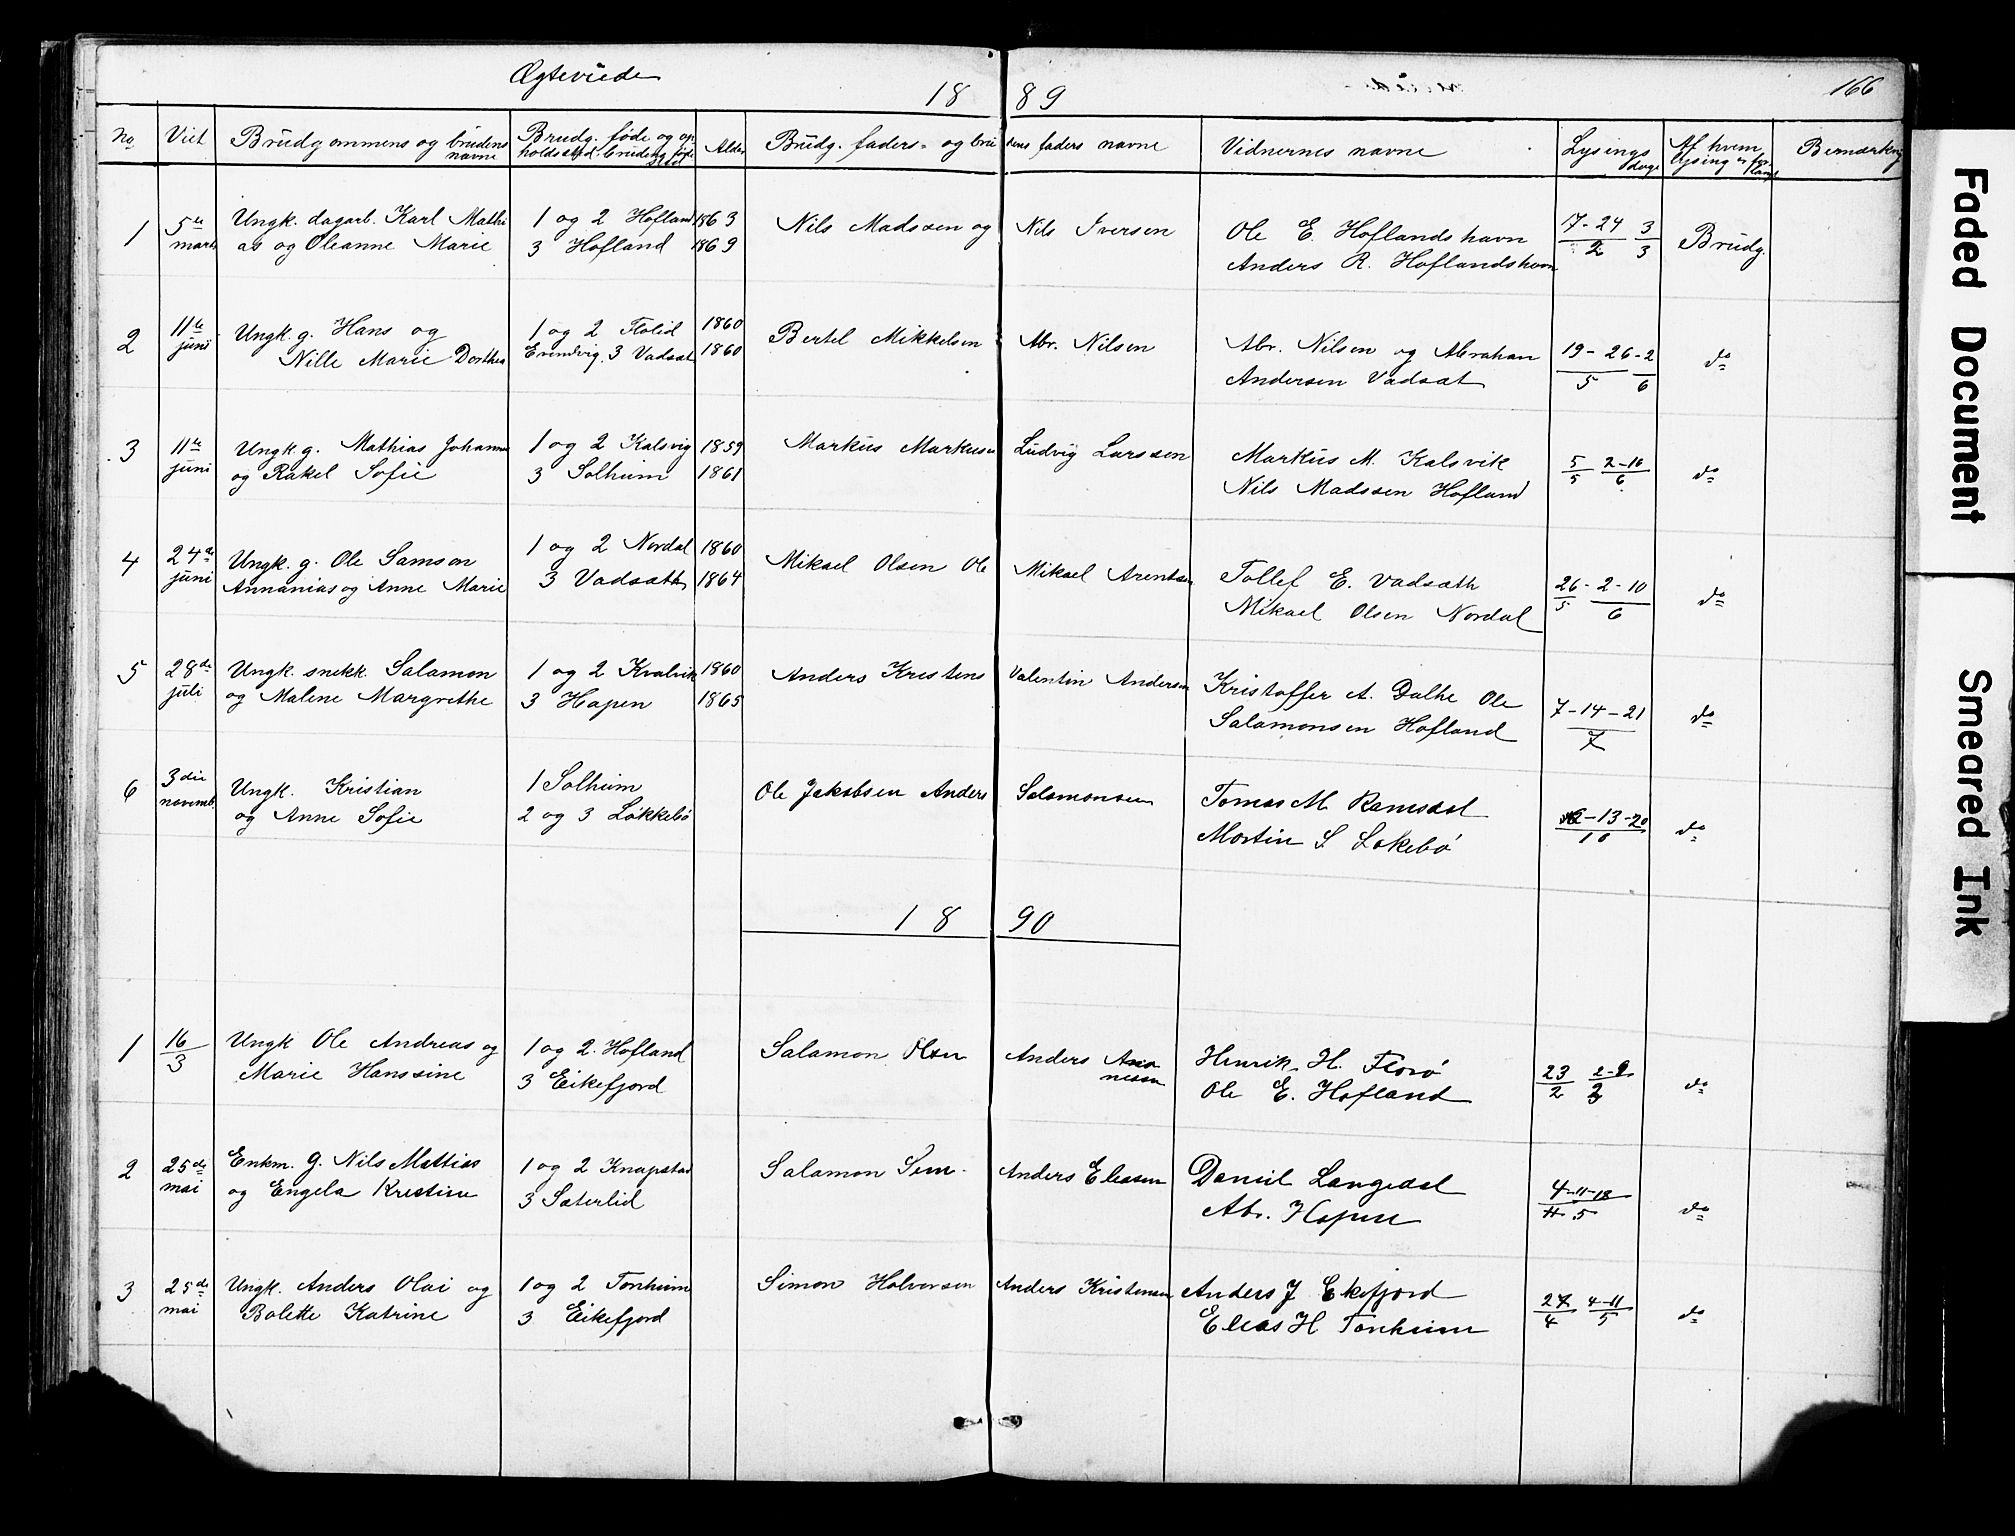 Ægteviede
1889
166
No
Viet
Brudgommens og brudens navne
Brudg. føde og opholdssted. brudens føde sted
Alder
Brudg. faders- og brudens faders navne
Vidnernes navne
Lysings dage
Af hvem lysing er forlangt
Bemærkning
1 5te Ungk. dagarb. Karl Mathi 1 og 2 Hofland 1863 Nils Madssen og Nils Iversen Ole E. Hoflandshavn 17-24 3 Brudg.
marts as og Oleanne Marie 3 Hofland 1869 Anders R. Hoflandshavn 2 3
2 11te Ungk. g. Hans og 1 og 2 Flolid 1860 Bertel Mikkelsen Abr. Nilsen Abr. Nilsen og Abraham 19-26-2 do
juni Nille Marie Dorthea 3 Vadsæt 1860 Andersen Vadsæt 5 6
3 11te Ungk. g. Mathias Johannes 1 og 2 Kalsvig 1859 Markus Markusen Ludvig Larssen Markus M. Kalsvik 5 2-10 do
juni og Rakel Sofie 3 Solheim 1861 Nils Madssen Hofland 5 6
4 24de Ungk. g. Ole Samson 1 og 2 Nordal 1860 Mikael Olsen Ole Mikael Arentsen Tollef E. Vadsæth 26-2-10 do
juni Annanias og Anne Marie 3 Vadsæth 1864 Mikael Olsen Nordal 5 6
5 28de Ungk. snekk. Salamon 1 og 2 Kvalvik 1860 Anders Kristens Valentin Andersen Kristoffer A. Dalhe Ole 7-14-21 do
juli og Malene Margrethe 3 Hopen 1865 Salamonsen Hofland 7
6 3die Ungk. Kristian 1 Solheim Ole Jakobsen Anders Salamonsen Tomas M Ramsdal -13-20 do
novemb. og Anne Sofie 2 og 3 Løkkebø Mortin S Løkebø 10
1890
1 16 Ungk Ole Andreas og 1 og 2. Hofland Salamon Olsen Anders Henrik H. Florø 23 2-9 do
3 Marie Hanssine 3 Eikefjord Ole E. Hofland 2 3
2 25de Enkm. g. Nils Mattias 1 og 2 Knapstad Salamon Sim. Anders Eleasen Daniel Langedal 4-11-18 do
mai og Engela Kristine 3 Sæterlid Abr. Hopen 5
3 25de Ungk. Anders Olai og 1 og 2 Tonheim Simon Halvorsen Anders Kristensen Anders J Ekefjord 27 4-11 do
mai Bolette Katrine 3 Eikefjord Eleas H Tonheim 4 5
Faded Document
Smeared Ink